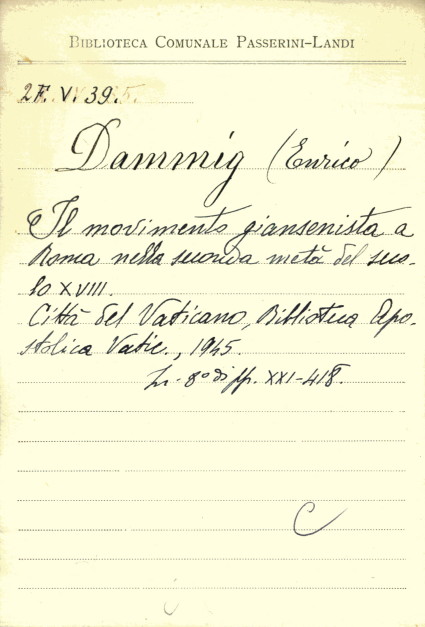 BIBLIOTECA COMUNALE PASSERINI-LANDI
2F. V. 39.
Dammig (Enrico)
Il movimento giansenista a
Roma nella seconda metà del seco-
lo XVIII.
Città del Vaticano, Biblioteca Apo-
stolica Vatic., 1945.
In-8° di pp. XXI-418.
C